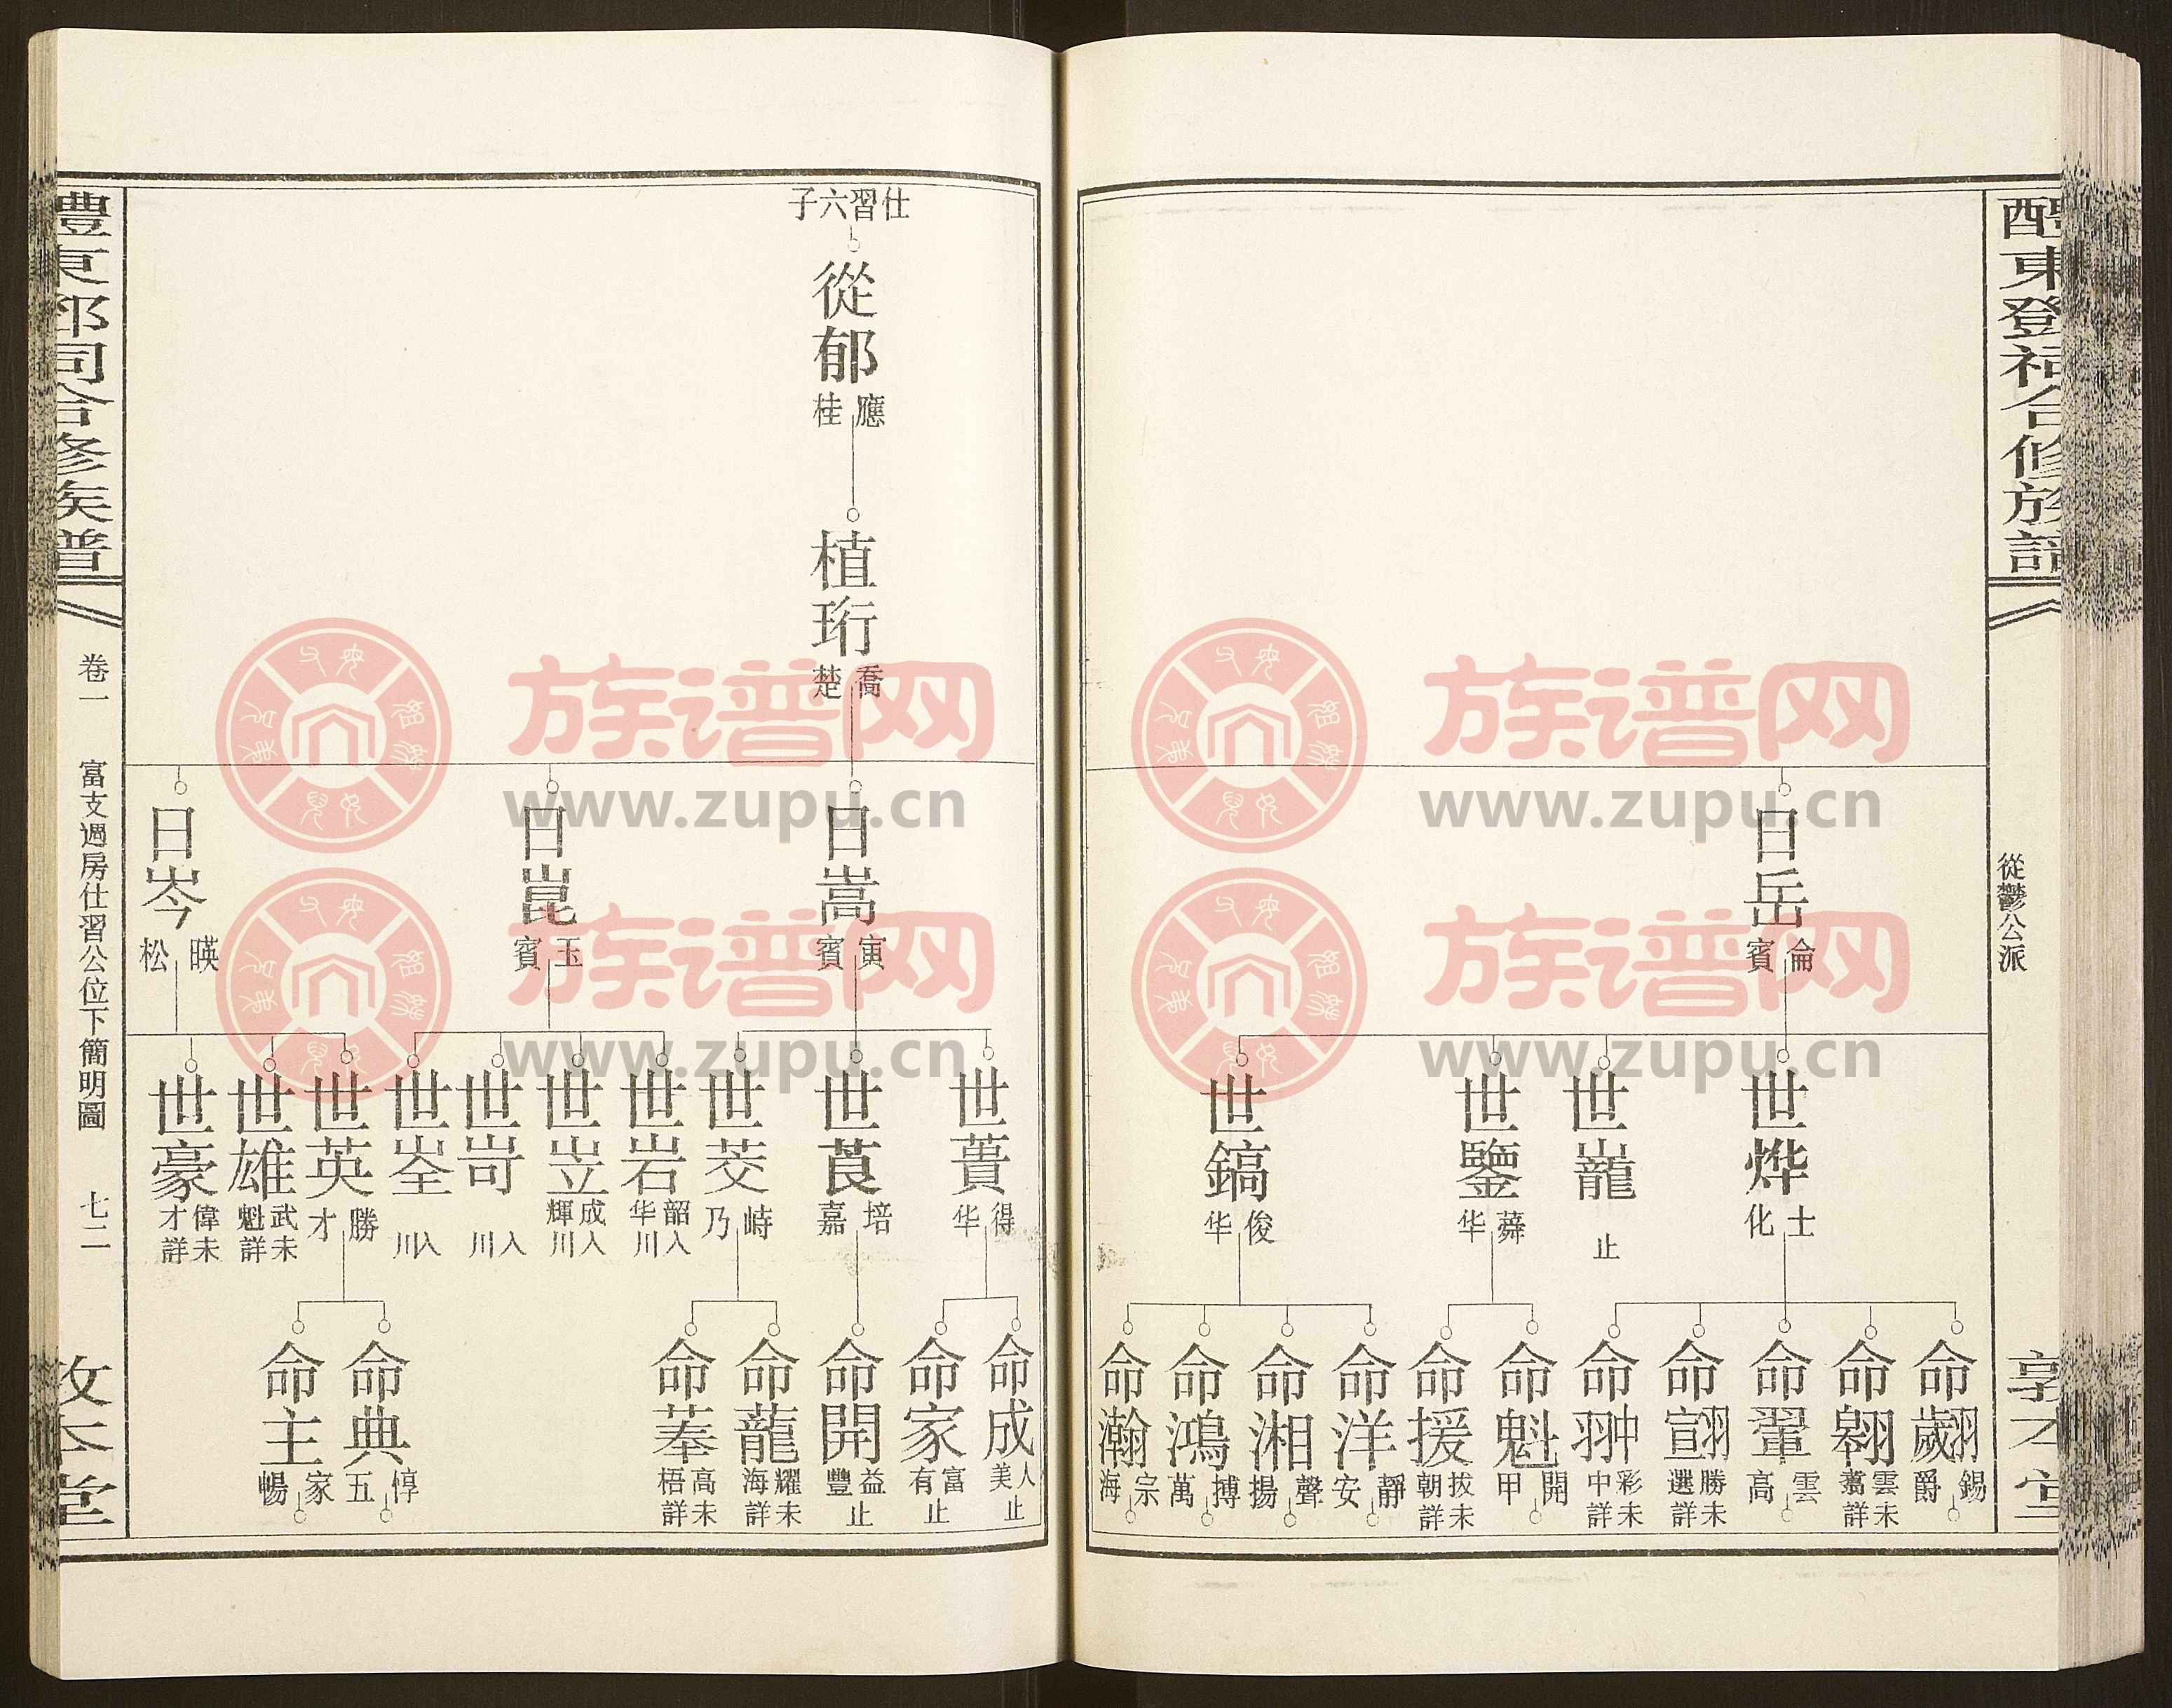 醴東鄧祠合修族譜
從鬱公派
敦本堂
日岳 倫賓
世烨 士化
世巃 止
世鑒 蕣华
世鎬 俊华
命翽 錫爵
命翱 雲翥 未詳
命翬 雲高
命翧 勝選 未詳
命翀 彩中 未詳
命魁 開甲
命援 拔朝 未詳
命洋 靜安
命湘 聲揚
命鴻 搏萬
命瀚 宗海
仕習六子
從郁 應桂
植珩 喬楚
日嵩 寅賓
日崑 玉賓
日岑 暎松
世蕢 得华
世莨 培嘉
世茭 峙乃
世岩 韶华 入川
世岦 成輝 入川
世岢 入川
世峑 入川
世英 勝才
世雄 武魁 未詳
世豪 偉才 未詳
命成 人美 止
命家 富有 止
命開 益豐 止
命蘢 耀海 未詳
命菶 高梧 未詳
命典 惇五
命主 家暢
醴東鄧祠合修族譜
卷一
富支週房仕習公位下簡明圖
七二
敦本堂
族谱网
www.zupu.cn
族谱网
www.zupu.cn
族谱网
www.zupu.cn
族谱网
www.zupu.cn